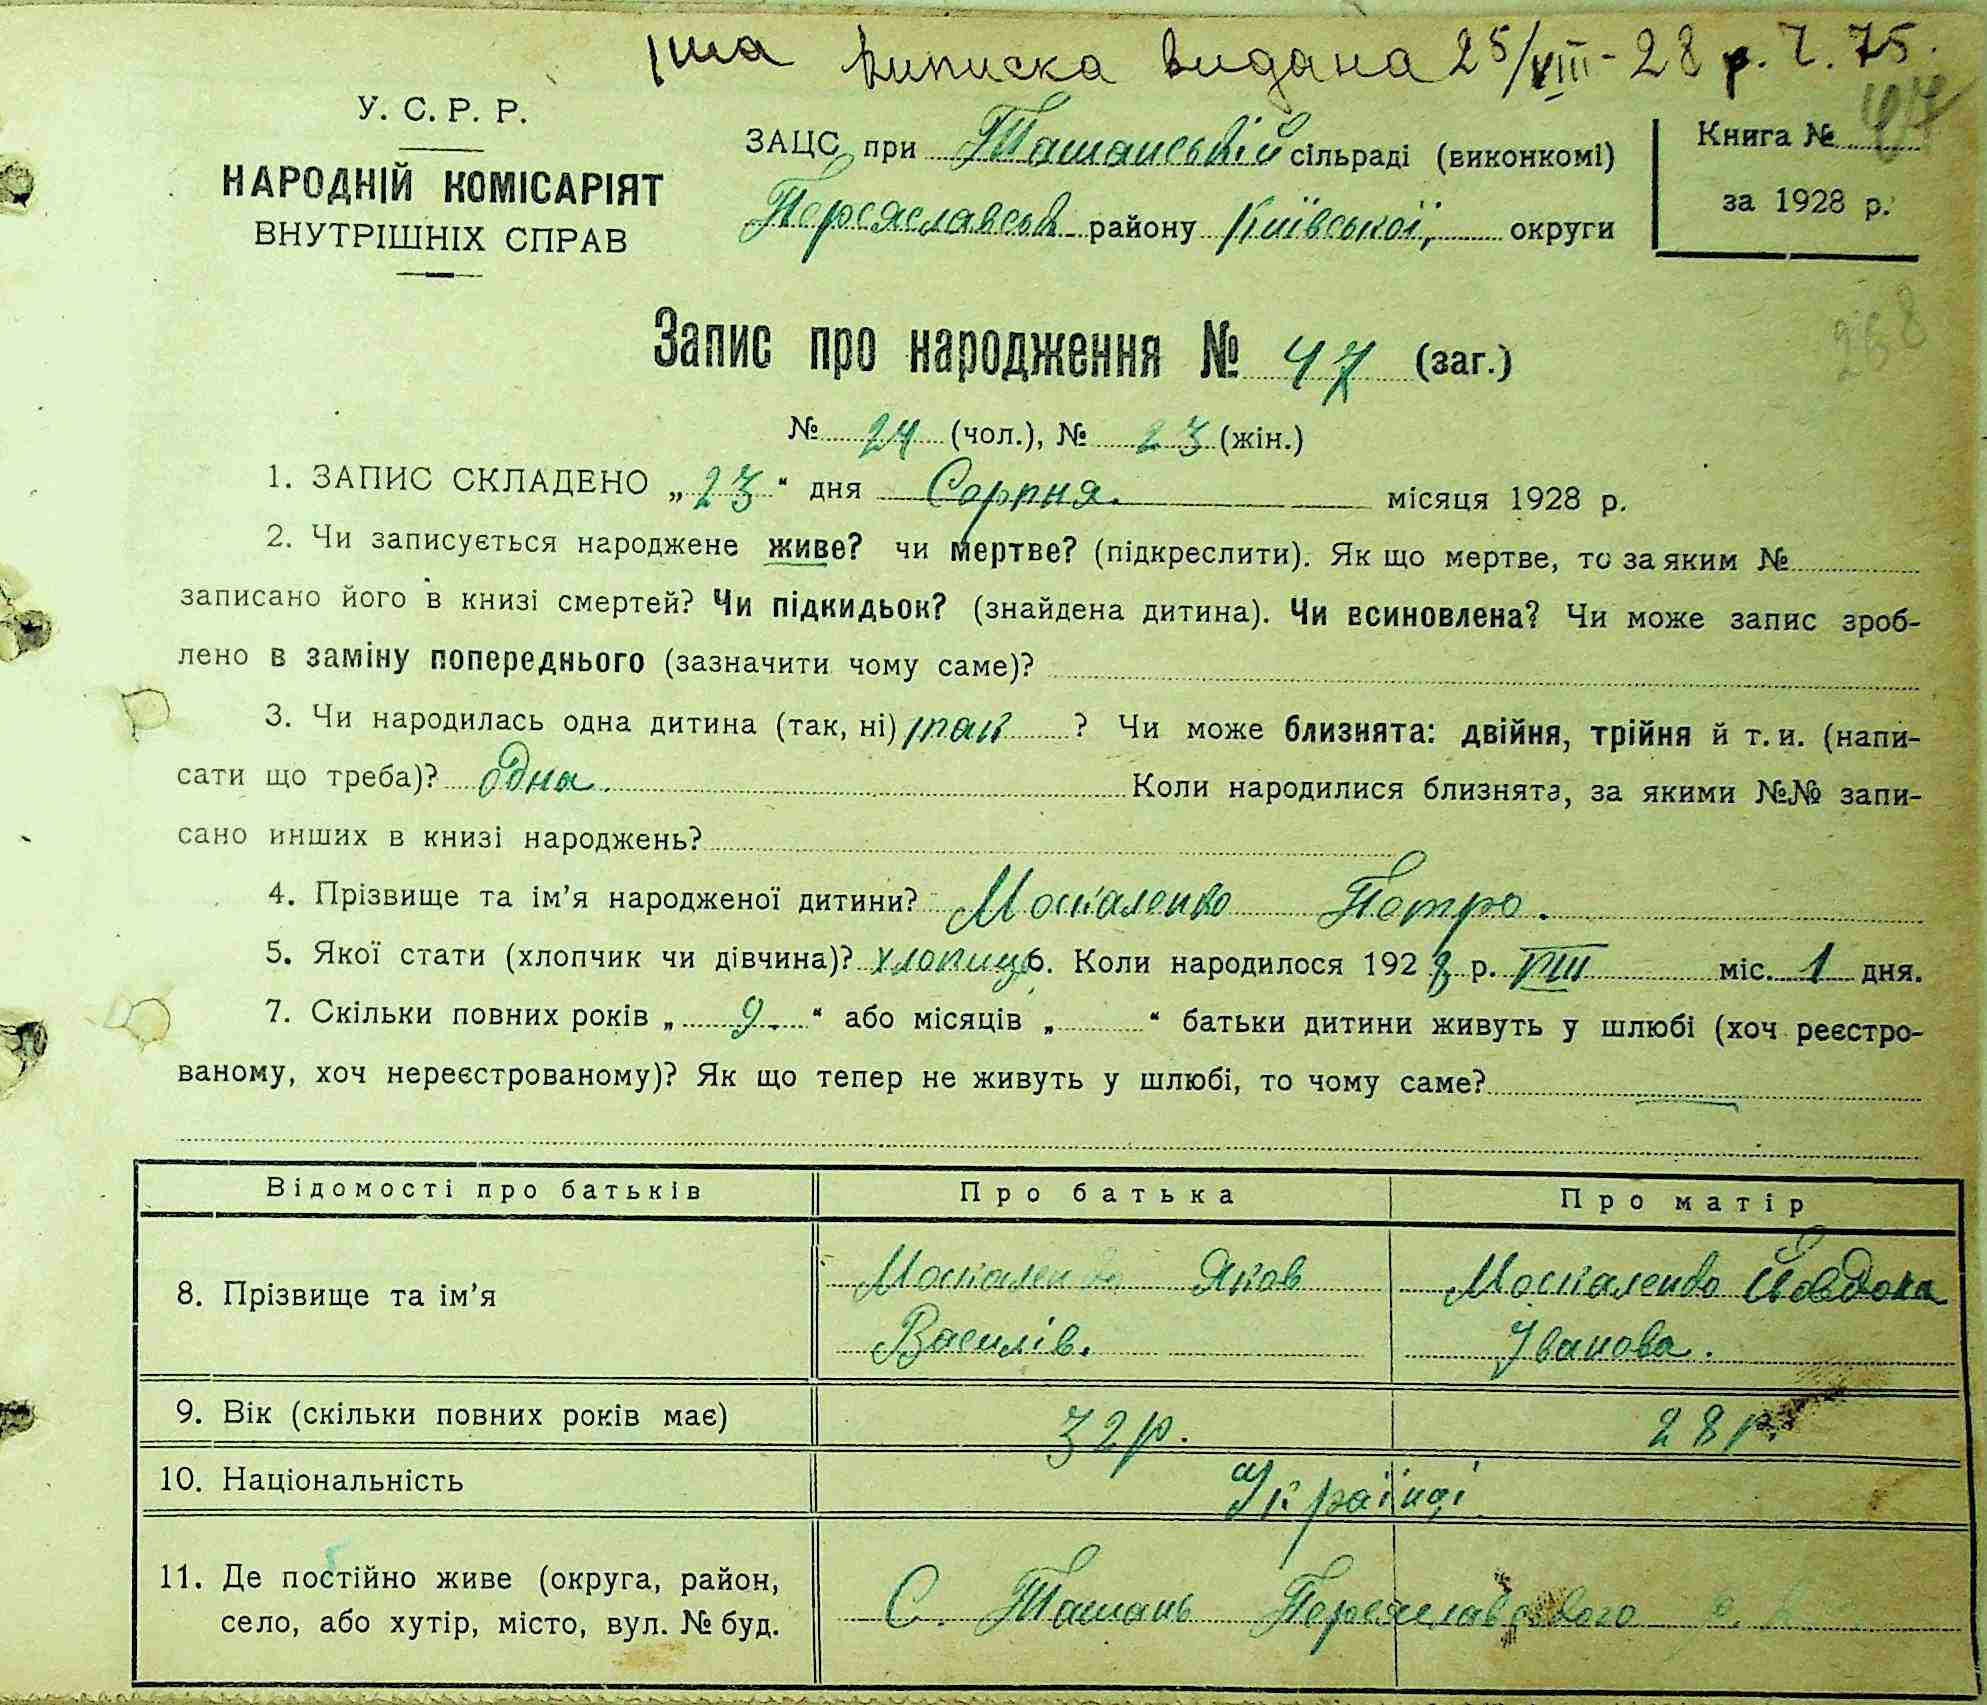 іша виписка видана 25/VIII-28 р. Ч. 75.
У. С. Р. Р.
НАРОДНІЙ КОМІСАРІЯТ
ВНУТРІШНІХ СПРАВ
ЗАЦС при Ташанській сільраді (виконкомі)
Переяславськ району Київської, округи
Книга №
за 1928 р.
268
Запис про народження № 47 (заг.)
№ 24 (чол.), № 23 (жін.)
1. ЗАПИС СКЛАДЕНО „23" дня Серпня. місяця 1928 р.
2. Чи записується народжене живе? чи мертве? (підкреслити). Як що мертве, то за яким №
записано його в книзі смертей? Чи підкидьок? (знайдена дитина). Чи всиновлена? Чи може запис зроб-
лено в заміну попереднього (зазначити чому саме)?
3. Чи народилась одна дитина (так, ні) так ? Чи може близнята: двійня, трійня й т. и. (напи-
сати що треба)? одна. Коли народилися близнята, за якими №№ запи-
сано инших в книзі народжень?
4. Прізвище та ім'я народженої дитини? Москаленко Петро.
5. Якої стати (хлопчик чи дівчина)? хлопець 6. Коли народилося 1928 р. VIII міс. 1 дня.
7. Скільки повних років „ 9. " або місяців „ " батьки дитини живуть у шлюбі (хоч реєстро-
ваному, хоч нереєстрованому)? Як що тепер не живуть у шлюбі, то чому саме?
Відомості про батьків Про батька Про матір
8. Прізвище та ім'я Москаленко Яков Москаленко Йовдоха
Василів. Іванова.
9. Вік (скільки повних років має) 32 р. 28 р.
10. Національність Українці
11. Де постійно живе (округа, район,
село, або хутір, місто, вул. № буд.
С. Ташань Переяславського